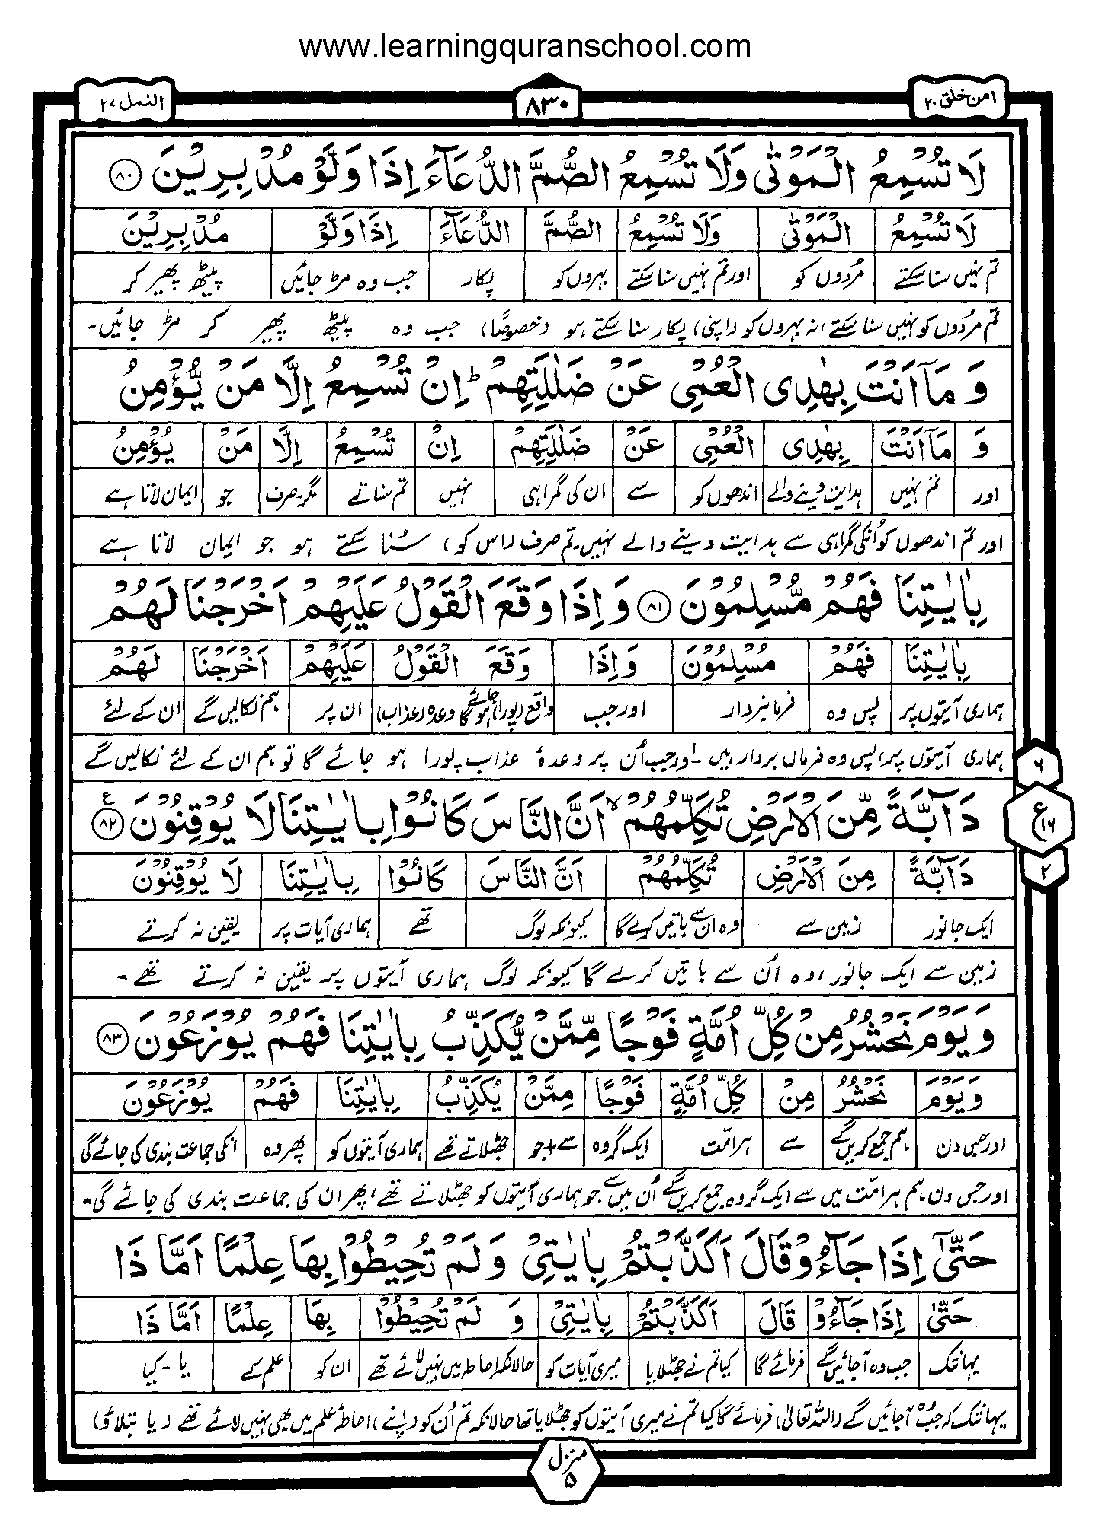 www.learningquranschool.com
امن خلق ۲۰ ۸۳۰ النمل ۲۷
لَا تُسْمِعُ الْمَوْتٰى وَلَا تُسْمِعُ الصُّمَّ الدُّعَآءَ اِذَا وَلَّوْ مُدْبِرِيْنَ ﴿۸۰﴾
لَا تُسْمِعُ الْمَوْتٰى وَلَا تُسْمِعُ الصُّمَّ الدُّعَآءَ اِذَا وَلَّوْ مُدْبِرِيْنَ
تم نہیں سنا سکتے مُردوں کو اور تم نہیں سنا سکتے بہروں کو پکار جب وہ مڑ جائیں پیٹھ پھیر کر
تم مردوں کو نہیں سنا سکتے (نہ بہروں کو (اپنی) پکار سنا سکتے ہو (خصوصًا) جب وہ پیٹھ پھیر کر مڑ جائیں-
وَ مَآ اَنْتَ بِهٰدِى الْعُمْىِ عَنْ ضَلٰلَتِهِمْ ؕ اِنْ تُسْمِعُ اِلَّا مَنْ يُّؤْمِنُ
وَ مَآ اَنْتَ بِهٰدِى الْعُمْىِ عَنْ ضَلٰلَتِهِمْ اِنْ تُسْمِعُ اِلَّا مَنْ يُؤْمِنُ
اور تم نہیں ہدایت دینے والے اندھوں کو سے ان کی گمراہی نہیں تم سناتے مگر۔صرف جو ایمان لاتا ہے
اور تم اندھوں کو انکی گمراہی سے ہدایت دینے والے نہیں۔ تم صرف (اس کو) سُنا سکتے ہو جو ایمان لاتا ہے
بِاٰيٰتِنَا فَهُمْ مُّسْلِمُوْنَ ﴿۸۱﴾ وَاِذَا وَقَعَ الْقَوْلُ عَلَيْهِمْ اَخْرَجْنَا لَهُمْ
بِاٰيٰتِنَا فَهُمْ مُسْلِمُوْنَ وَاِذَا وَقَعَ الْقَوْلُ عَلَيْهِمْ اَخْرَجْنَا لَهُمْ
ہماری آیتوں پر پس وہ فرمانبردار اور جب واقع (پورا) ہو جائے گا وعدہ (عذاب) ان پر ہم نکالیں گے ان کے لئے
ہماری آیتوں پر، پس وہ فرماں بردار ہیں - اور جب اُن پر وعدۂ عذاب پورا ہو جائے گا تو ہم ان کے لئے نکالیں گے
۶
دَآبَّةً مِّنَ الْاَرْضِ تُكَلِّمُهُمْ ۙ اَنَّ النَّاسَ كَانُوْا بِاٰيٰتِنَا لَا يُوْقِنُوْنَ ﴿۸۲﴾ ع
ع ۱۶
دَآبَّةً مِنَ الْاَرْضِ تُكَلِّمُهُمْ اَنَّ النَّاسَ كَانُوْا بِاٰيٰتِنَا لَا يُوْقِنُوْنَ
۲
ایک جانور زمین سے وہ ان سے باتیں کرے گا کیونکہ لوگ تھے ہماری آیات پر یقین نہ کرتے
زمین سے ایک جانور، وہ اُن سے باتیں کرے گا کیونکہ لوگ ہماری آیتوں پر یقین نہ کرتے تھے -
وَيَوْمَ نَحْشُرُ مِنْ كُلِّ اُمَّةٍ فَوْجًا مِّمَّنْ يُّكَذِّبُ بِاٰيٰتِنَا فَهُمْ يُوْزَعُوْنَ ﴿۸۳﴾
وَيَوْمَ نَحْشُرُ مِنْ كُلِّ اُمَّةٍ فَوْجًا مِمَّنْ يُكَذِّبُ بِاٰيٰتِنَا فَهُمْ يُوْزَعُوْنَ
اور جس دن ہم جمع کریں گے سے ہر امّت ایک گروہ سے+جو جھٹلاتے تھے ہماری آیتوں کو پھر وہ انکی جماعت بندی کی جائے گی
اور جس دن ہم ہر امّت میں سے ایک گروہ جمع کریں گے اُن میں سے جو ہماری آیتوں کو جھٹلاتے تھے، پھر ان کی جماعت بندی کی جائے گی-
حَتّٰٓى اِذَا جَآءُوْ قَالَ اَكَذَّبْتُمْ بِاٰيٰتِىْ وَلَمْ تُحِيْطُوْا بِهَا عِلْمًا اَمَّا ذَا
حَتّٰى اِذَا جَآءُوْ قَالَ اَكَذَّبْتُمْ بِاٰيٰتِىْ وَ لَمْ تُحِيْطُوْا بِهَا عِلْمًا اَمَّا ذَا
یہانتک جب وہ آ جائیں گے فرمائے گا کیا تم نے جھٹلایا میری آیات کو حالانکہ احاطہ میں نہیں لائے تھے ان کو علم کے یا - کیا
یہانتک کہ جب وہ آ جائیں گے (اللہ تعالیٰ) فرمائے گا کیا تم نے میری آیتوں کو جھٹلایا تھا حالانکہ تم اُن کو (اپنے) احاطۂ علم میں بھی نہیں لائے تھے (یا بتلاؤ)
منزل ۵